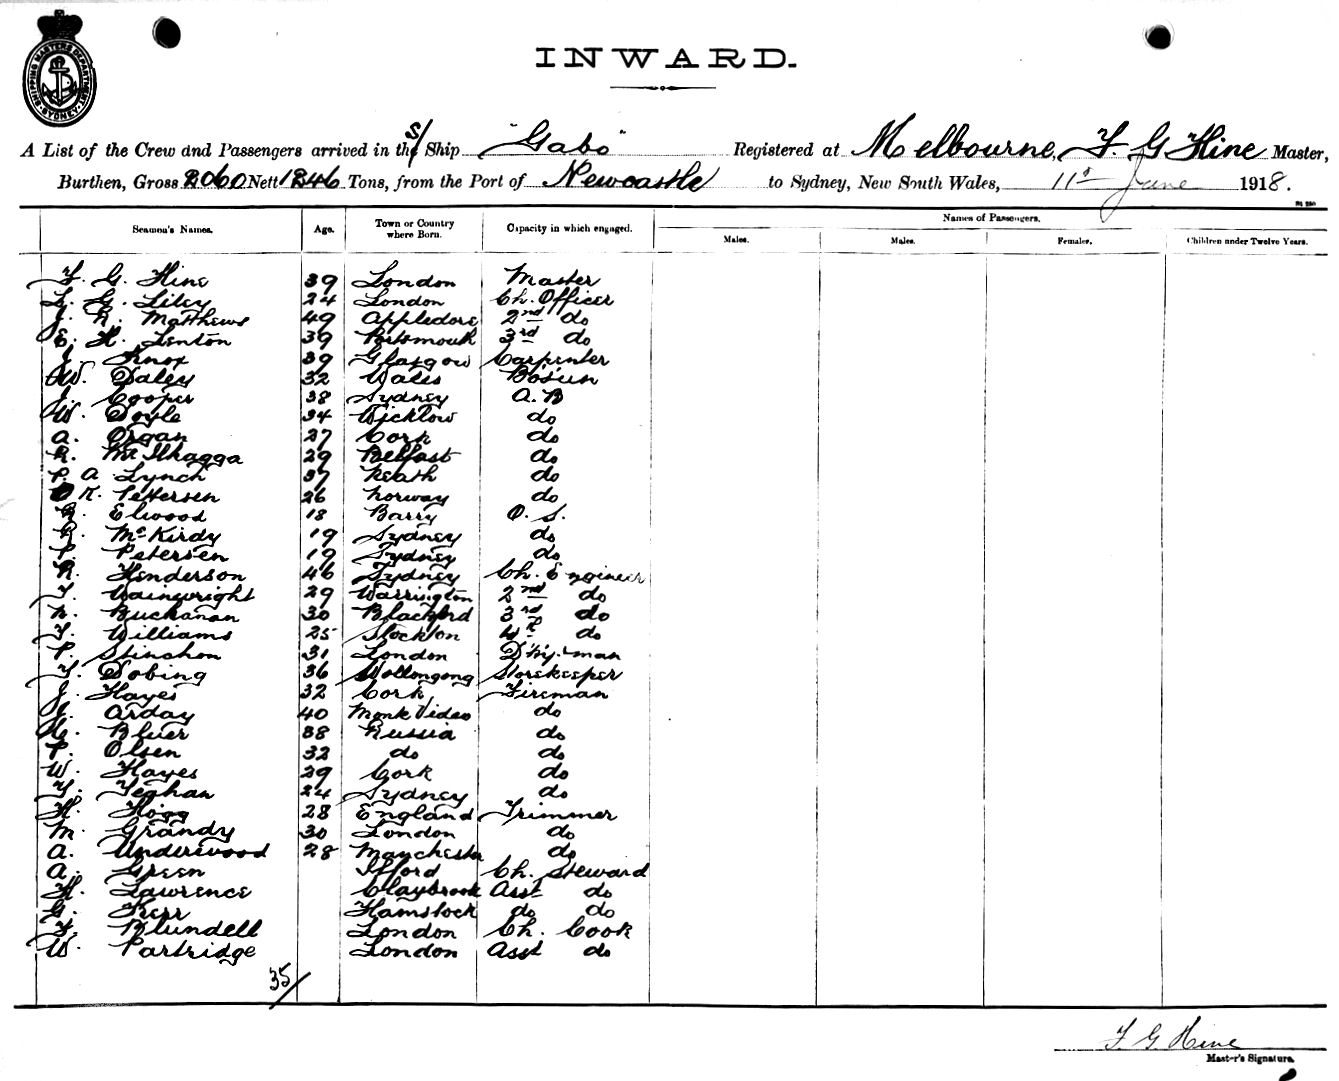 SHIPPING MASTERS DEPARTMENT SYDNEY
INWARD.
A List of the Crew and Passengers arrived in the S/ Ship "Gabo" Registered at Melbourne, F. G Hine Master,
Burthen, Gross 2060 Nett 1246 Tons, from the Port of Newcastle to Sydney, New South Wales, 11th June 1918.
Names of Passengers.
Seamen's Names. Age. Town or Country where Born. Capacity in which engaged. Males. Males. Females. Children under Twelve Years.
F. G. Hine 39 London Master
L. G. Liley 24 London Ch. Officer
J. N. Matthews 49 Appledore 2nd do
E. H. Lenton 39 Portsmouth 3rd do
J. Knox 39 Glasgow Carpenter
W. Daley 32 Wales Bosun
J. Cooper 38 Sydney A. B
W. Doyle 34 Wicklow do
A. Organ 27 Cork do
R. McIlhagga 29 Belfast do
P. A Lynch 37 Neath do
K. Pettersen 26 Norway do
R. Elwood 18 Barry O. S.
R. McKirdy 19 Sydney do
P. Petersen 19 Sydney do
R. Henderson 46 Sydney Ch. Engineer
T. Wainwright 29 Warrington 2nd do
N. Buchanan 30 Blackford 3rd do
T. Williams 25 Stockton 4th do
P. Stinchon 31 London man
T. Dobing 36 Wollongong Storekeeper
J. Hayes 32 Cork Fireman
Arday 40 Monte Video do
Bluer 38 Russia do
P. Olsen 32 do do
W. Hayes 29 Cork do
T. Feghan 24 Sydney do
H. Hogg 28 England Trimmer
M. Grandy 30 London do
A. Underwood 28 Manchester do
A. Green Ifford Ch. Steward
H. Lawrence Claybrook Asst do
G. Kerr Hamstock do do
F. Blundell London Ch. Cook
W. Partridge London Asst do
35/
F. G. Hine
Master's Signature.